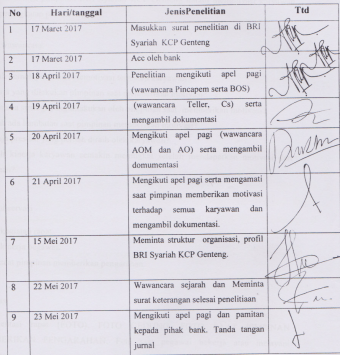 No Hari/tanggal JenisPenelitian Ttd
1 17 Maret 2017 Masukkan surat penelitian di BRI
Syariah KCP Genteng
2 17 Maret 2017 Acc oleh bank
3 18 April 2017 Penelitian mengikuti apel pagi
(wawancara Pincapem serta BOS)
4 19 April 2017 (wawancara Teller, Cs) serta
mengambil dokumentasi
5 20 April 2017 Mengikuti apel pagi (wawancara
AOM dan AO) serta mengambil
domumentasi
6 21 April 2017 Mengikuti apel pagi serta mengamati
saat pimpinan memberikan motivasi
terhadap semua karyawan dan
mengambil dokumentasi.
7 15 Mei 2017 Meminta struktur organisasi, profil
BRI Syariah KCP Genteng.
8 22 Mei 2017 Wawancara sejarah dan Meminta
surat keterangan selesai penelitiaan
9 23 Mei 2017 Mengikuti apel pagi dan pamitan
kepada pihak bank. Tanda tangan
jurnal